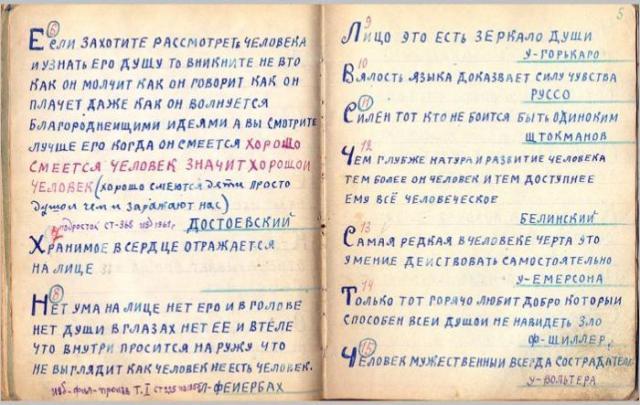 6
ЕСЛИ ЗАХОТИТЕ РАССМОТРЕТЬ ЧЕЛОВЕКА
И УЗНАТЬ ЕГО ДУШУ ТО ВНИКНИТЕ НЕ В ТО
КАК ОН МОЛЧИТ КАК ОН ГОВОРИТ КАК ОН
ПЛАЧЕТ ДАЖЕ КАК ОН ВОЛНУЕТСЯ
БЛАГОРОДНЕИЩИМИ ИДЕЯМИ А ВЫ СМОТРИТЕ
ЛУЧШЕ ЕГО КОГДА ОН СМЕЕТСЯ ХОРОШО
СМЕЕТСЯ ЧЕЛОВЕК ЗНАЧИТ ХОРОШОЙ
ЧЕЛОВЕК (хорошо смеются дети просто
душой чем и заражают нас)
подросток СТ-368 изд 1961г. ДОСТОЕВСКИЙ
7
ХРАНИМОЕ В СЕРДЦЕ ОТРАЖАЕТСЯ
НА ЛИЦЕ
8
НЕТ УМА НА ЛИЦЕ НЕТ ЕГО И В ГОЛОВЕ
НЕТ ДУШИ В ГЛАЗАХ НЕТ ЕЕ И В ТЕЛЕ
ЧТО ВНУТРИ ПРОСИТСЯ НА РУЖУ ЧТО
НЕ ВЫГЛЯДИТ КАК ЧЕЛОВЕК НЕ ЕСТЬ ЧЕЛОВЕК.
изб-фил-произв Т. I Л-ФЕИЕРБАХ
5
9
ЛИЦО ЭТО ЕСТЬ ЗЕРКАЛО ДУШИ
У-ГОРЬКАГО
10
ВЯЛОСТЬ ЯЗЫКА ДОКАЗВАЕТ СИЛУ ЧУВСТВА
РУССО
11
СИЛЕН ТОТ КТО НЕ БОИТСЯ БЫТЬ ОДИНОКИМ
ЩТОКМАНОВ
12
ЧЕМ ГЛУБЖЕ НАТУРА И РАЗВИТИЕ ЧЕЛОВЕКА
ТЕМ БОЛЕЕ ОН ЧЕЛОВЕК И ТЕМ ДОСТУПНЕЕ
ЕМУ ВСЁ ЧЕЛОВЕЧЕСКОЕ
БЕЛИНСКИЙ
13
САМАЯ РЕДКАЯ В ЧЕЛОВЕКЕ ЧЕРТА ЭТО
УМЕНИЕ ДЕЙСТВОВАТЬ САМОСТОЯТЕЛЬНО
У-ЕМЕРСОНА
14
ТОЛЬКО ТОТ ГОРЯЧО ЛЮБИТ ДОБРО КОТОРЫИ
СПОСОБЕН ВСЕИ ДУШОИ НЕ НАВИДЕТЬ ЗЛО
Ф-ШИЛЛЕР
15
ЧЕЛОВЕК МУЖЕСТВЕННЫЙ ВСЕГДА СОСТРАДАТЕЛЕ
У-ВОЛЬТЕРА